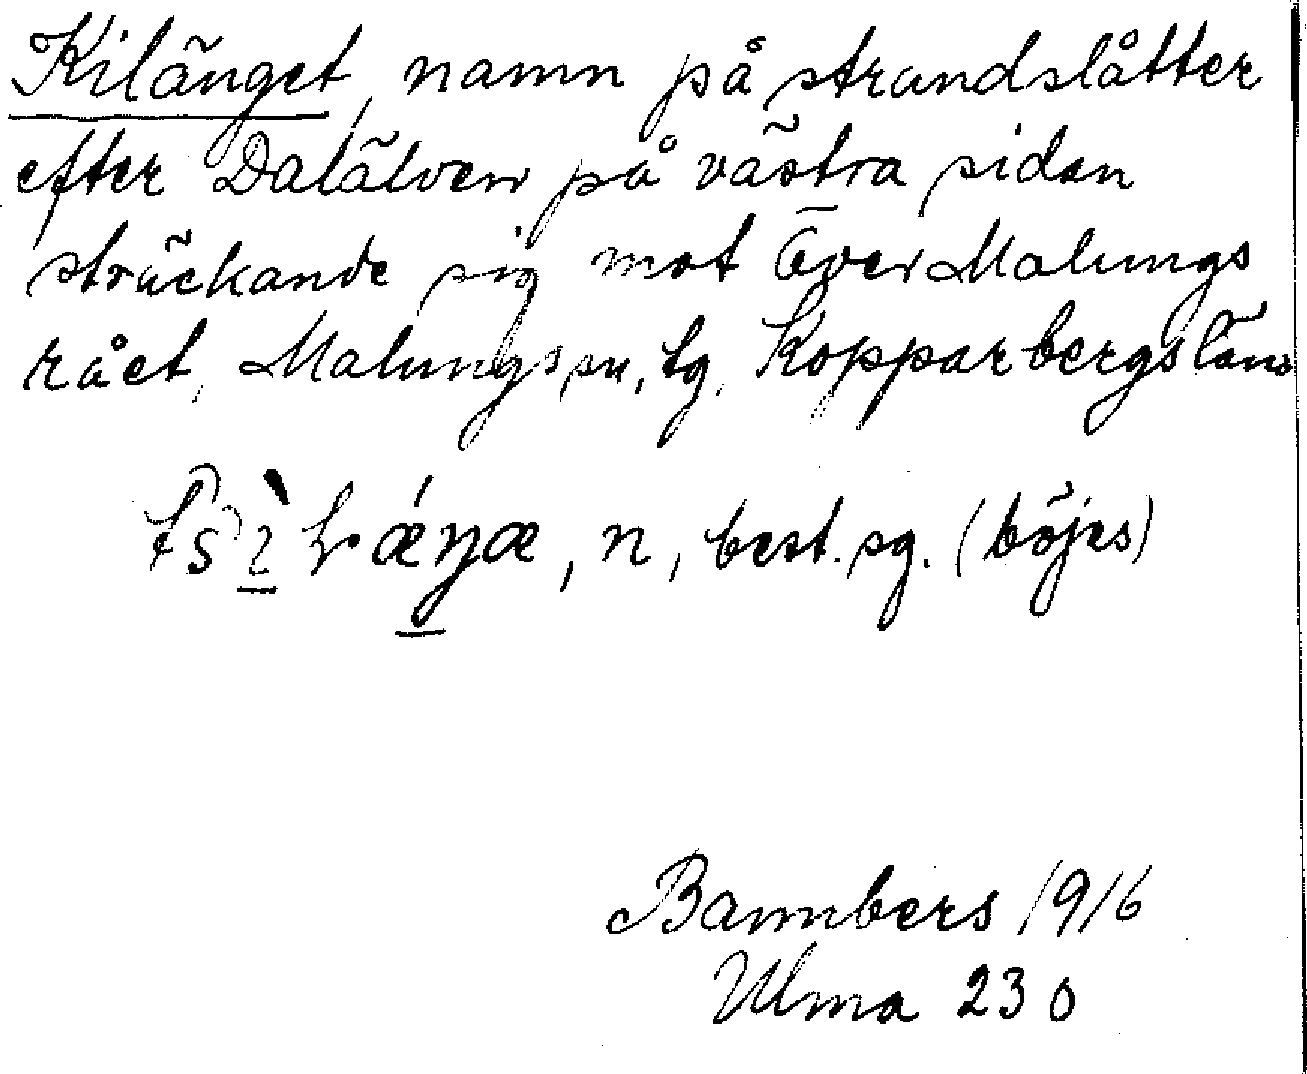 Kilänget, namn på strandslåtter
efter Dalälven på västra sidan
sträckande sig mot Över Malungs
rået, Malungs sn, Kopparbergs län
n, best. sg. (böjes)
Bannbers 1916
Ulma 230